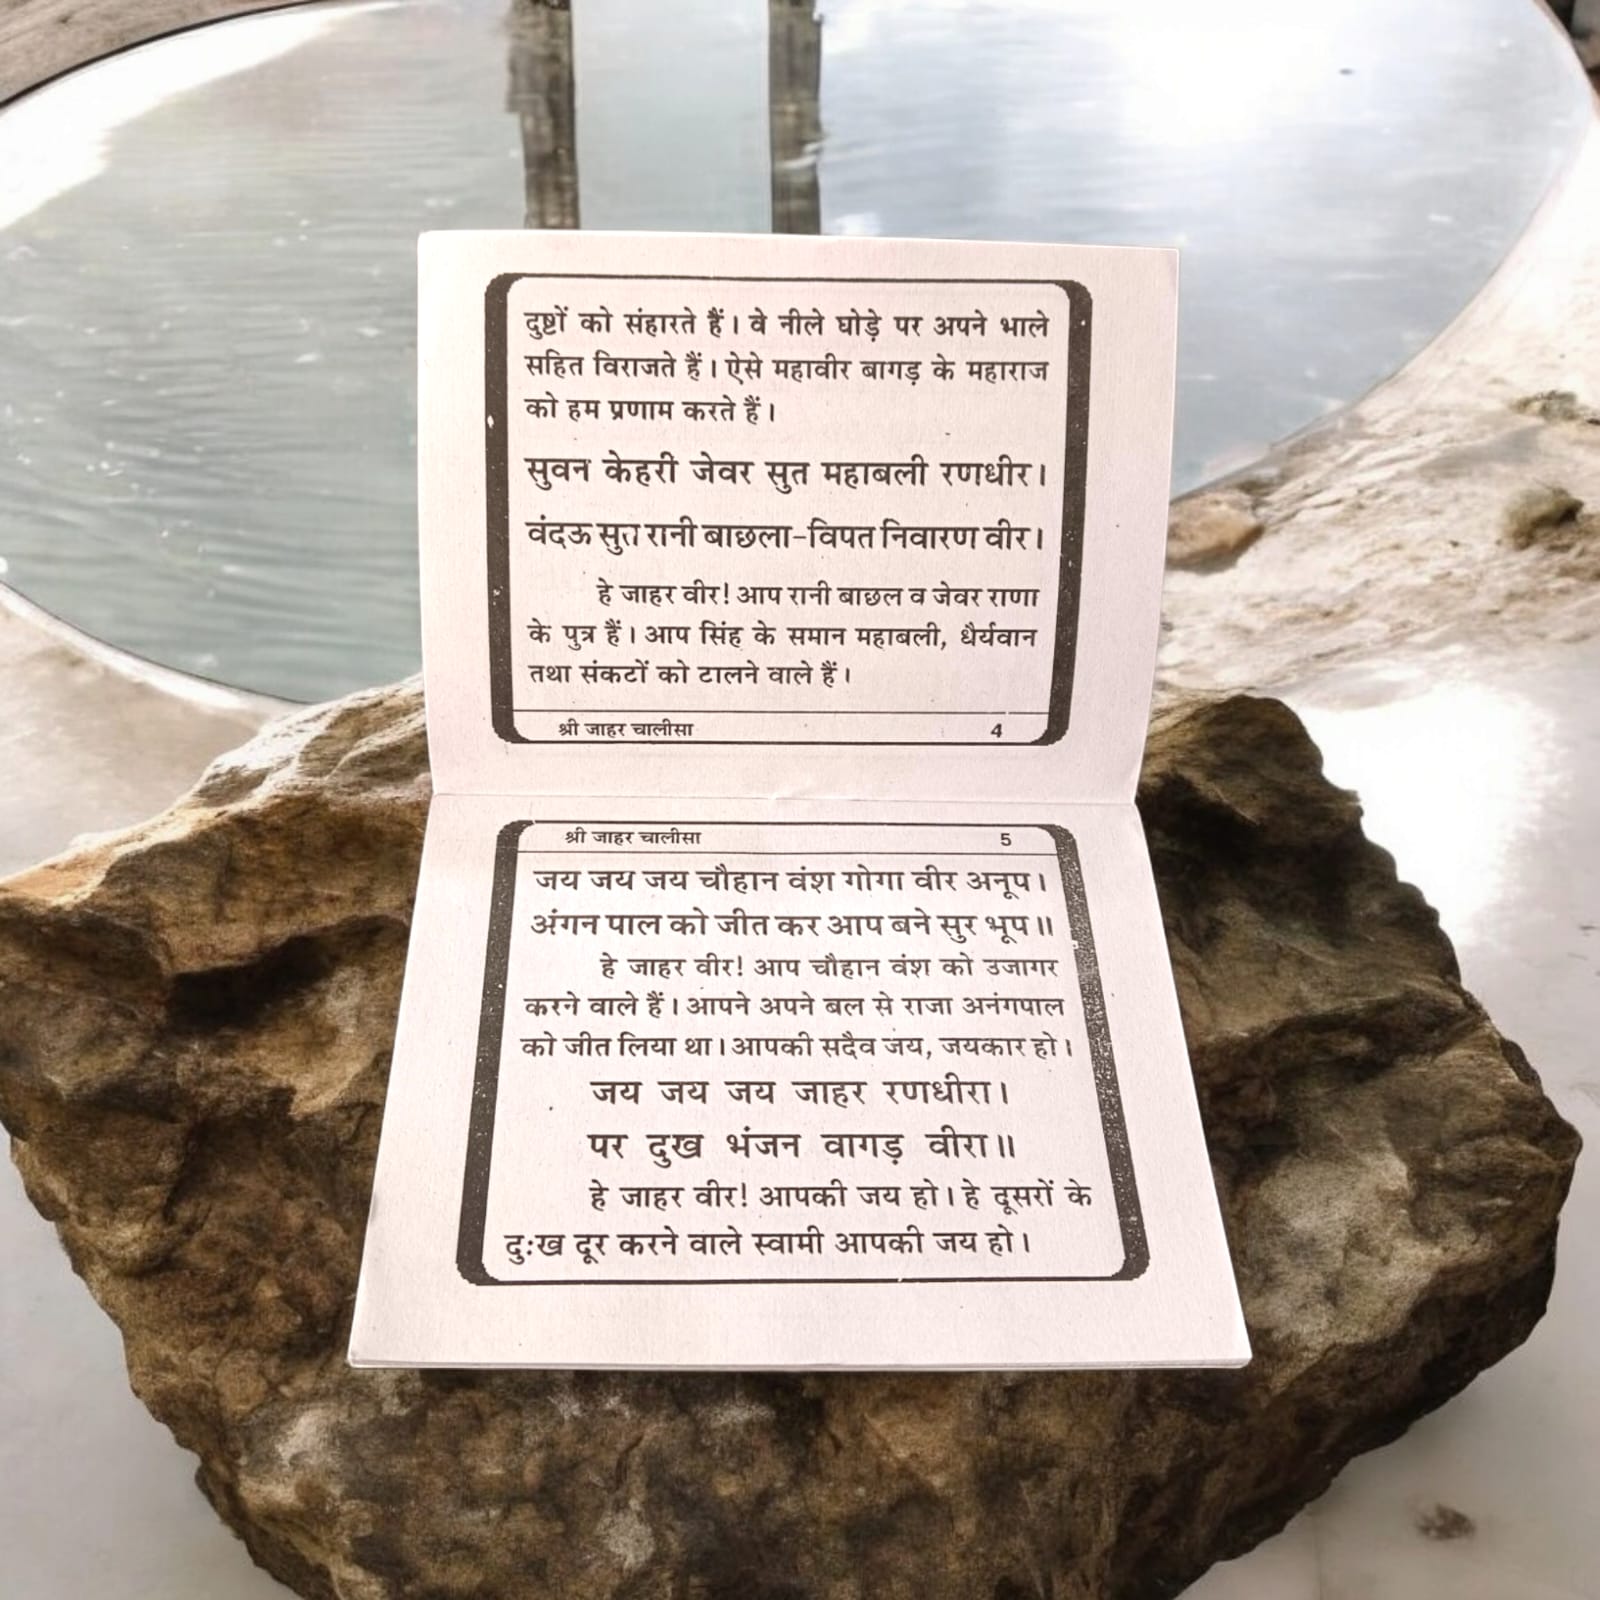 दुष्टों को संहारते हैं। वे नीले घोड़े पर अपने भाले
सहित विराजते हैं। ऐसे महावीर बागड़ के महाराज
को हम प्रणाम करते हैं।
सुवन केहरी जेवर सुत महाबली रणधीर।
वंदऊ सुत रानी बाछला-विपत निवारण वीर।
हे जाहर वीर! आप रानी बाछल व जेवर राणा
के पुत्र हैं। आप सिंह के समान महाबली, धैर्यवान
तथा संकटों को टालने वाले हैं।
श्री जाहर चालीसा 4
श्री जाहर चालीसा 5
जय जय जय चौहान वंश गोगा वीर अनूप।
अंगन पाल को जीत कर आप बने सुर भूप॥
हे जाहर वीर! आप चौहान वंश को उजागर
करने वाले हैं। आपने अपने बल से राजा अनंगपाल
को जीत लिया था। आपकी सदैव जय, जयकार हो।
जय जय जय जाहर रणधीरा।
पर दुख भंजन वागड़ वीरा॥
हे जाहर वीर! आपकी जय हो। हे दूसरों के
दुःख दूर करने वाले स्वामी आपकी जय हो।